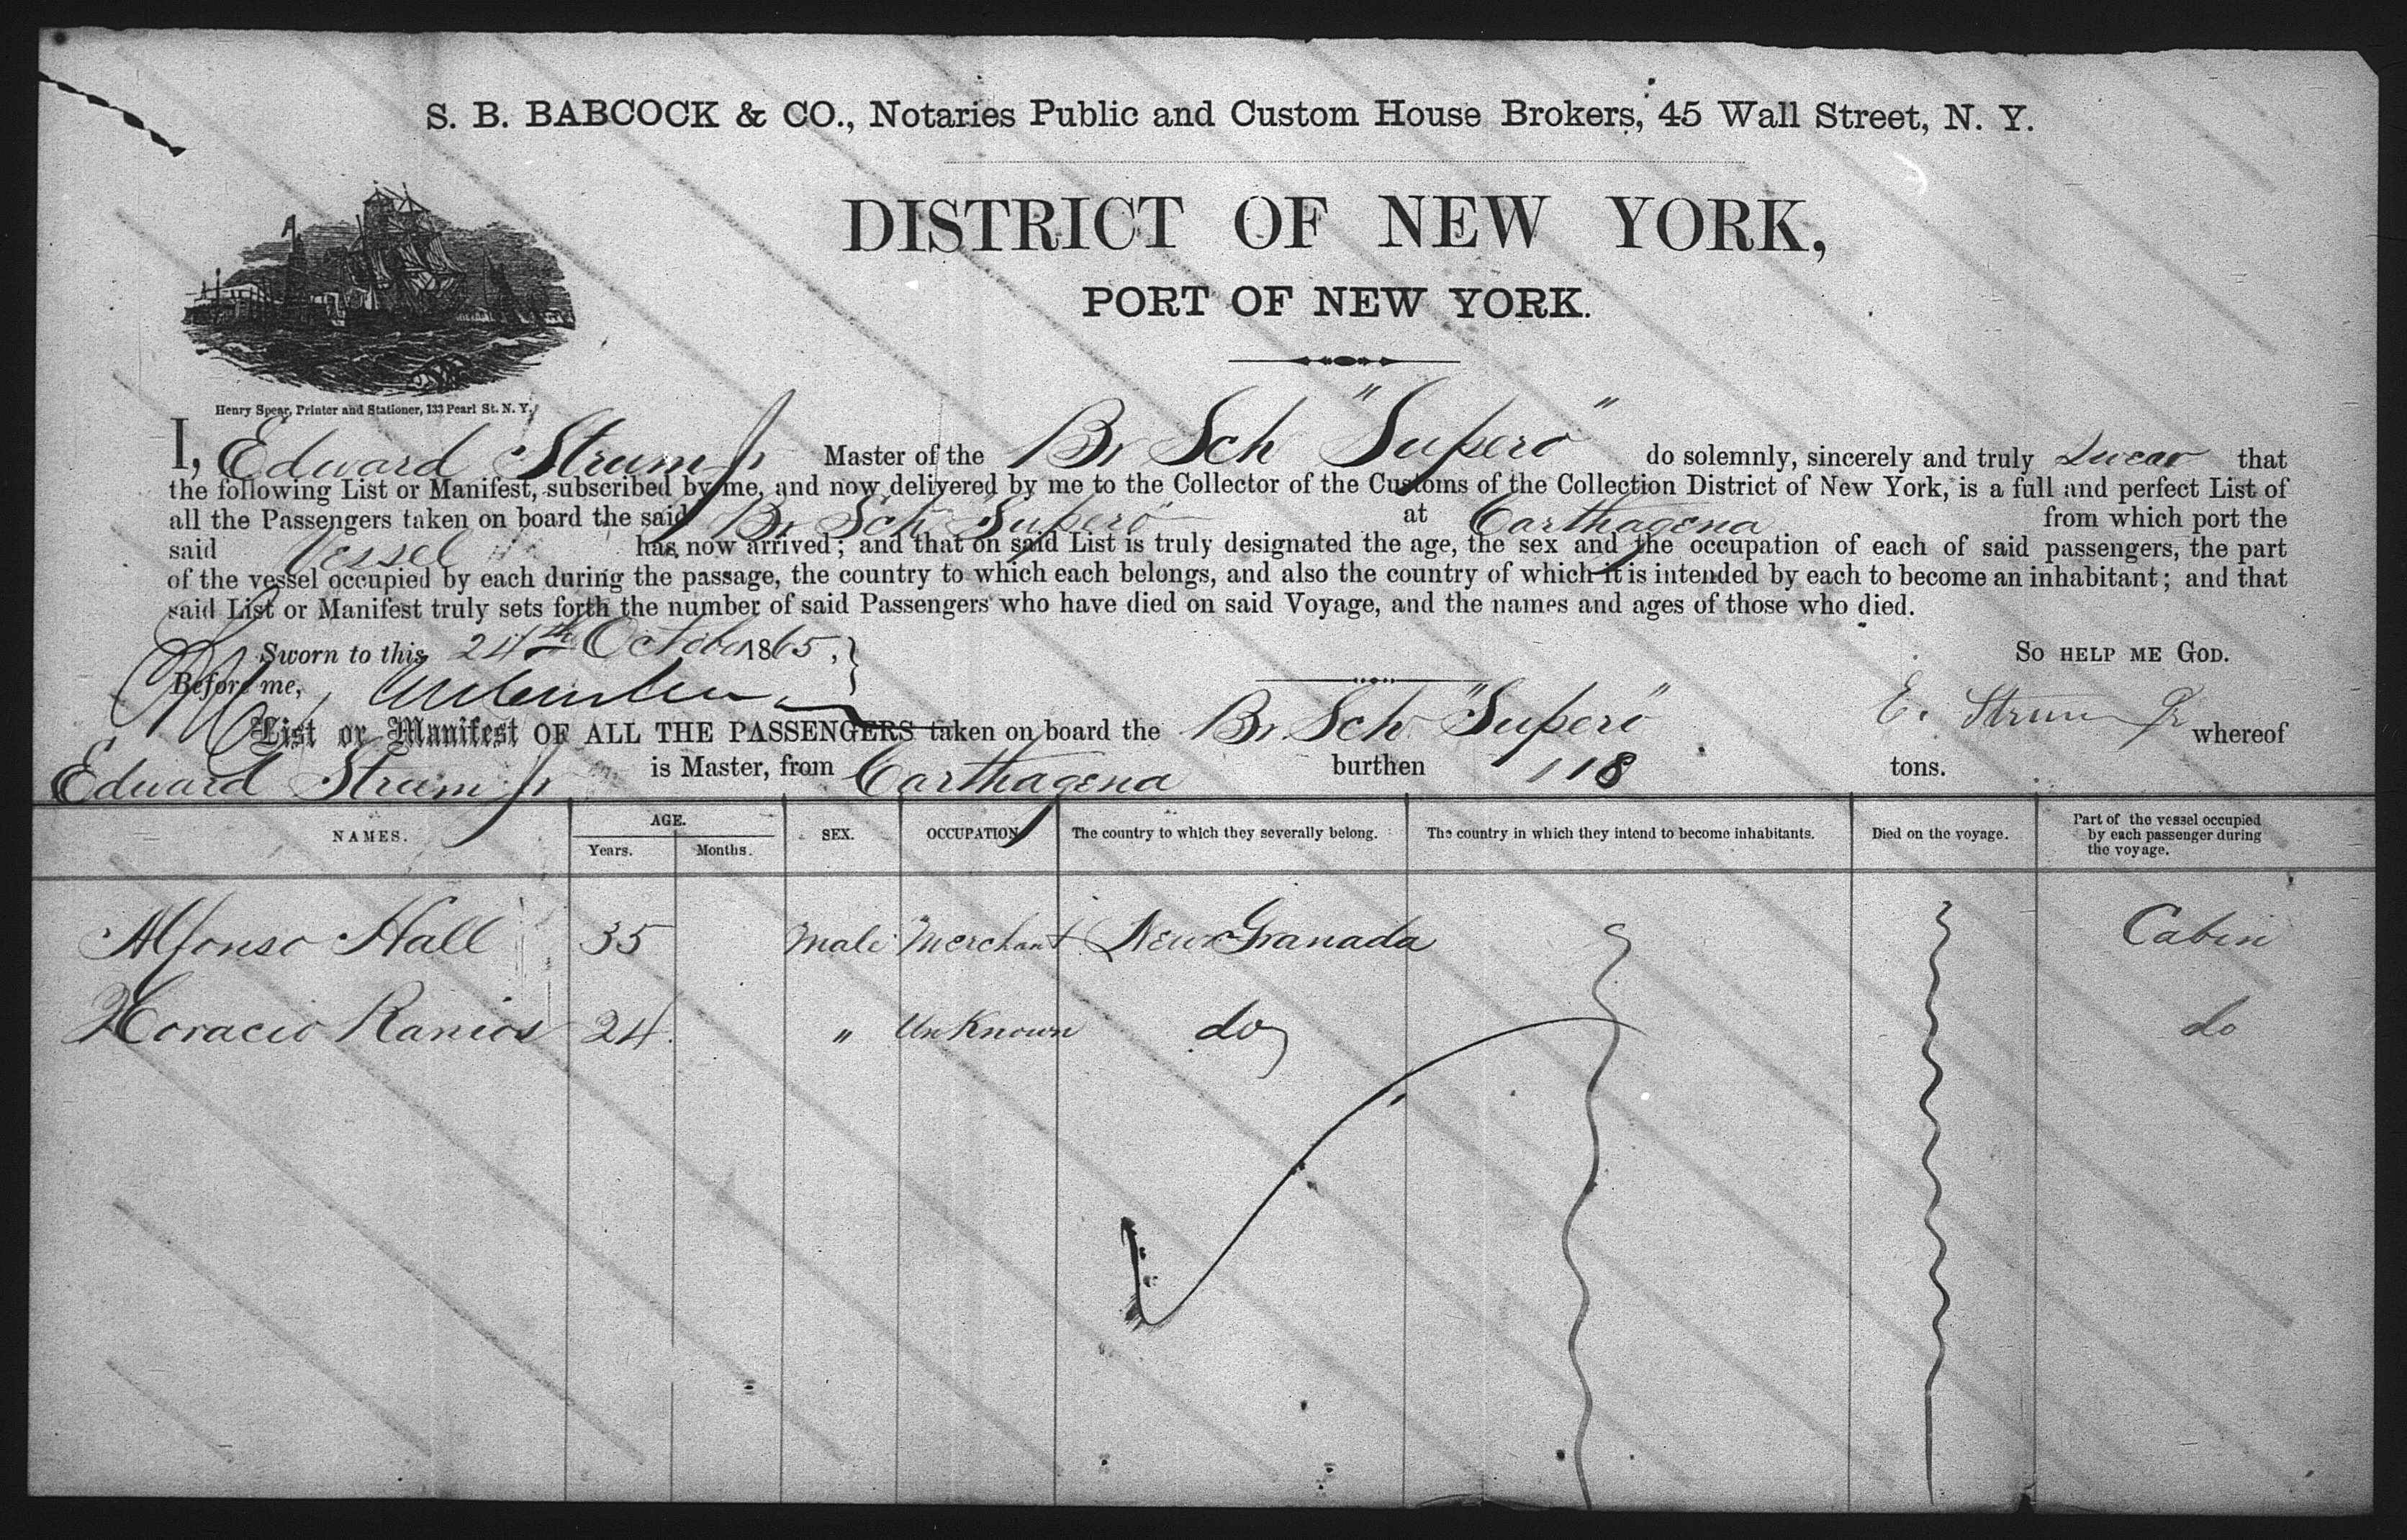 S. B. BABCOCK & CO., Notaries Public and Custom House Brokers, 45 Wall Street, N. Y.
DISTRICT OF NEW YORK,
PORT OF NEW YORK.
Henry Spear, Printer and Stationer, 133 Pearl St. N. Y.
I, Edward Strum Jr Master of the Br Sch "Supero" do solemnly, sincerely and truly Swear that
the following List or Manifest, subscribed by me, and now delivered by me to the Collector of the Customs of the Collection District of New York, is a full and perfect List of
all the Passengers taken on board the said Br Sch "Supero" at Carthagena from which port the
said Vessel has now arrived; and that on said List is truly designated the age, the sex and the occupation of each of said passengers, the part
of the vessel occupied by each during the passage, the country to which each belongs, and also the country of which it is intended by each to become an inhabitant; and that
said List or Manifest truly sets forth the number of said Passengers who have died on said Voyage, and the names and ages of those who died.
Sworn to this 24th October 1865, SO HELP ME GOD.
Before me, E. Strum Jr
List or Manifest OF ALL THE PASSENGERS taken on board the Br Sch "Supero" whereof
Edward Strum Jr is Master, from Carthagena burthen 118 tons.
NAMES. AGE. Years. Months. SEX. OCCUPATION The country to which they severally belong. The country in which they intend to become inhabitants. Died on the voyage. Part of the vessel occupied by each passenger during the voyage.
Alfonso Hall 35 Male Merchant New Granada Cabin
Horacio Ramos 24 " UnKnown do do